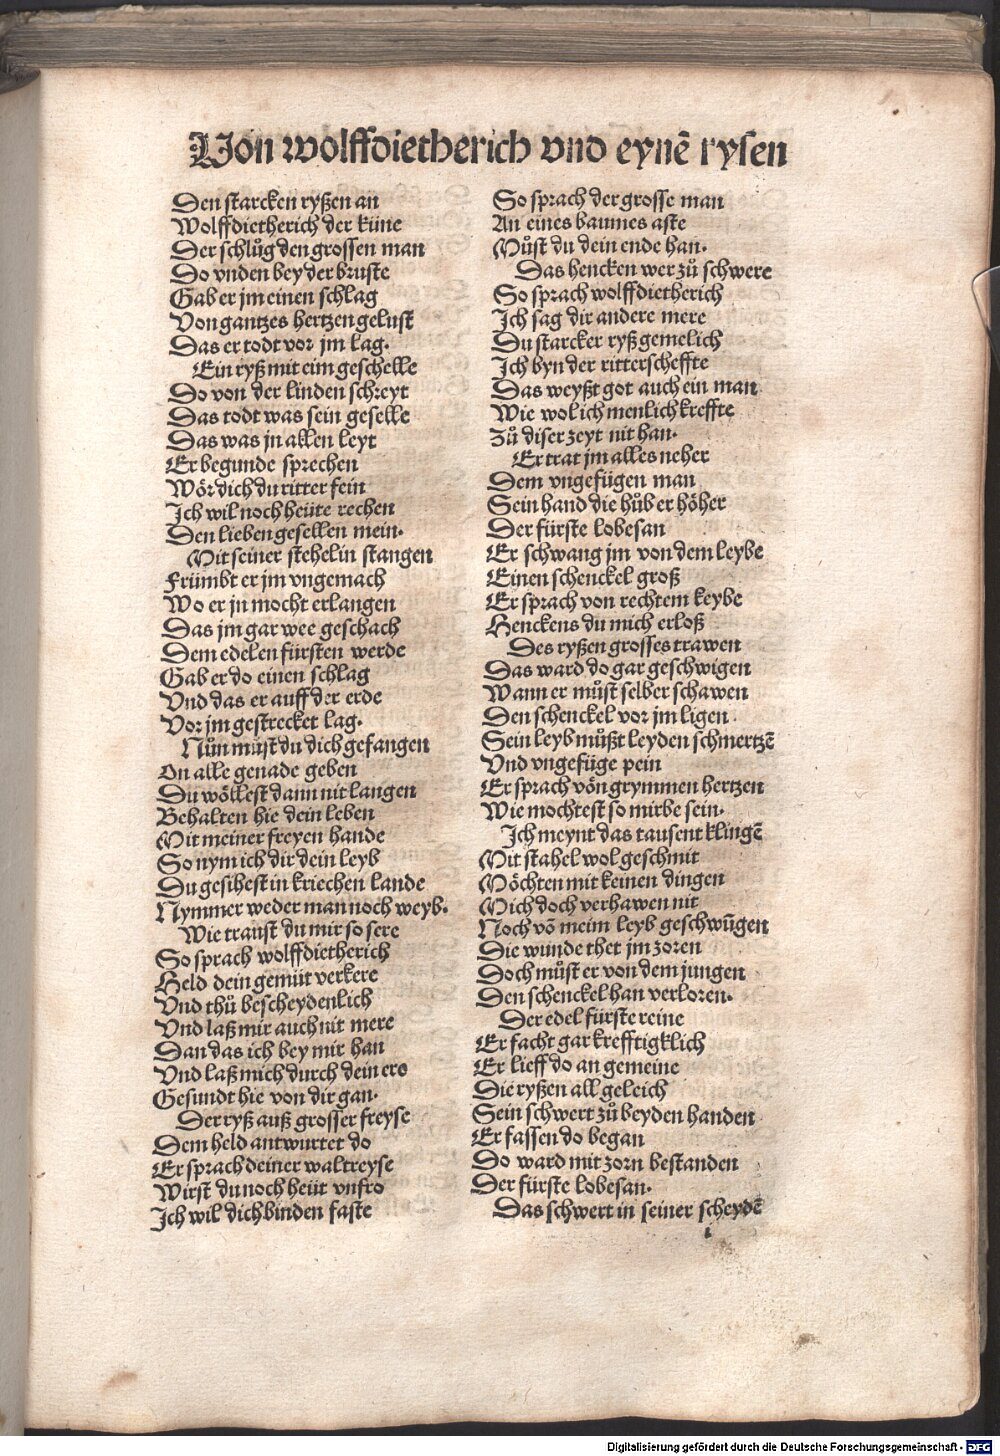 Von wolffdietherich vnd eynē rysen
Den starcken ryßen an
Wolffdietherich der küne
Der schlůg den grossen man
Do vnden bey der bruste
Gab er jm einen schlag
Von gantzes hertzen gelust
Das er todt vor jm lag.
Ein ryß mit eim geschelle
Do von der linden schreyt
Das todt was sein geselle
Das was jn allen leyt
Er begunde sprechen
Wör dich du ritter fein
Ich wil noch heüte rechen
Den lieben gesellen mein.
Mit seiner stehelin stangen
Frümbt er jm vngemach
Wo er jn mocht erlangen
Das jm gar wee geschach
Dem edelen fürsten werde
Gab er do einen schlag
Vnd das er auff der erde
Vor jm gestrecket lag.
Nůn můst du dich gefangen
On alle genade geben
Du wöllest dann nit langen
Behalten hie dein leben
Mit meiner freyen hande
So nym ich dir dein leyb
Du gesihest in kriechen lande
Nymmer weder man noch weyb.
Wie traust du mir so sere
So sprach wolffdietherich
Held dein gemüt verkere
Vnd thů bescheydenlich
Vnd laß mir auch nit mere
Dan das ich bey mir han
Vnd laß mich durch dein ere
Gesundt hie von dir gan.
Der ryß auß grosser freyse
Dem held antwurtet do
Er sprach deiner waltreyse
Wirst du noch heüt vnfro
Ich wil dich binden faste
So sprach der grosse man
An eines baumes aste
Můst du dein ende han.
Das hencken wer zů schwere
So sprach wolffdietherich
Ich sag dir andere mere
Du starcker ryß gemelich
Ich byn der ritterscheffte
Das weyßt got auch ein man
Wie wol ich menlich kreffte
Zů diser zeyt nit han.
Er trat jm alles neher
Dem vngefügen man
Sein hand die hůb er höher
Der fürste lobesan
Er schwang jm von dem leybe
Einen schenckel groß
Er sprach von rechtem keybe
Henckens du mich erloß
Des ryßen grosses trawen
Das ward do gar geschwigen
Wann er můst selber schawen
Den schenckel vor jm ligen.
Sein leyb můßt leyden schmertzē
Vnd vngefüge pein
Er sprach von grymmen hertzen
Wie mochtest so mirbe sein.
Ich meynt das tausent klingē
Mit stahel wol geschmit
Möchten mit keinen dingen
Mich doch verhawen nit
Noch vō meim leyb geschwūgen
Die wunde thet jm zoren
Doch můst er von dem jungen
Den schenckel han verloren.
Der edel fürste reine
Er facht gar krefftigklich
Er lieff do an gemeine
Die ryßen all geleich
Sein schwert zů beyden handen
Er fassen do began
Do ward mit zorn bestanden
Der fürste lobesan.
Das schwert in seiner scheydē
i
Digitalisierung gefördert durch die Deutsche Forschungsgemeinschaft - DFG